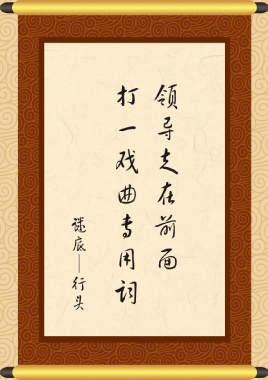 领导走在前面
打一戏曲专用词
谜底——行头